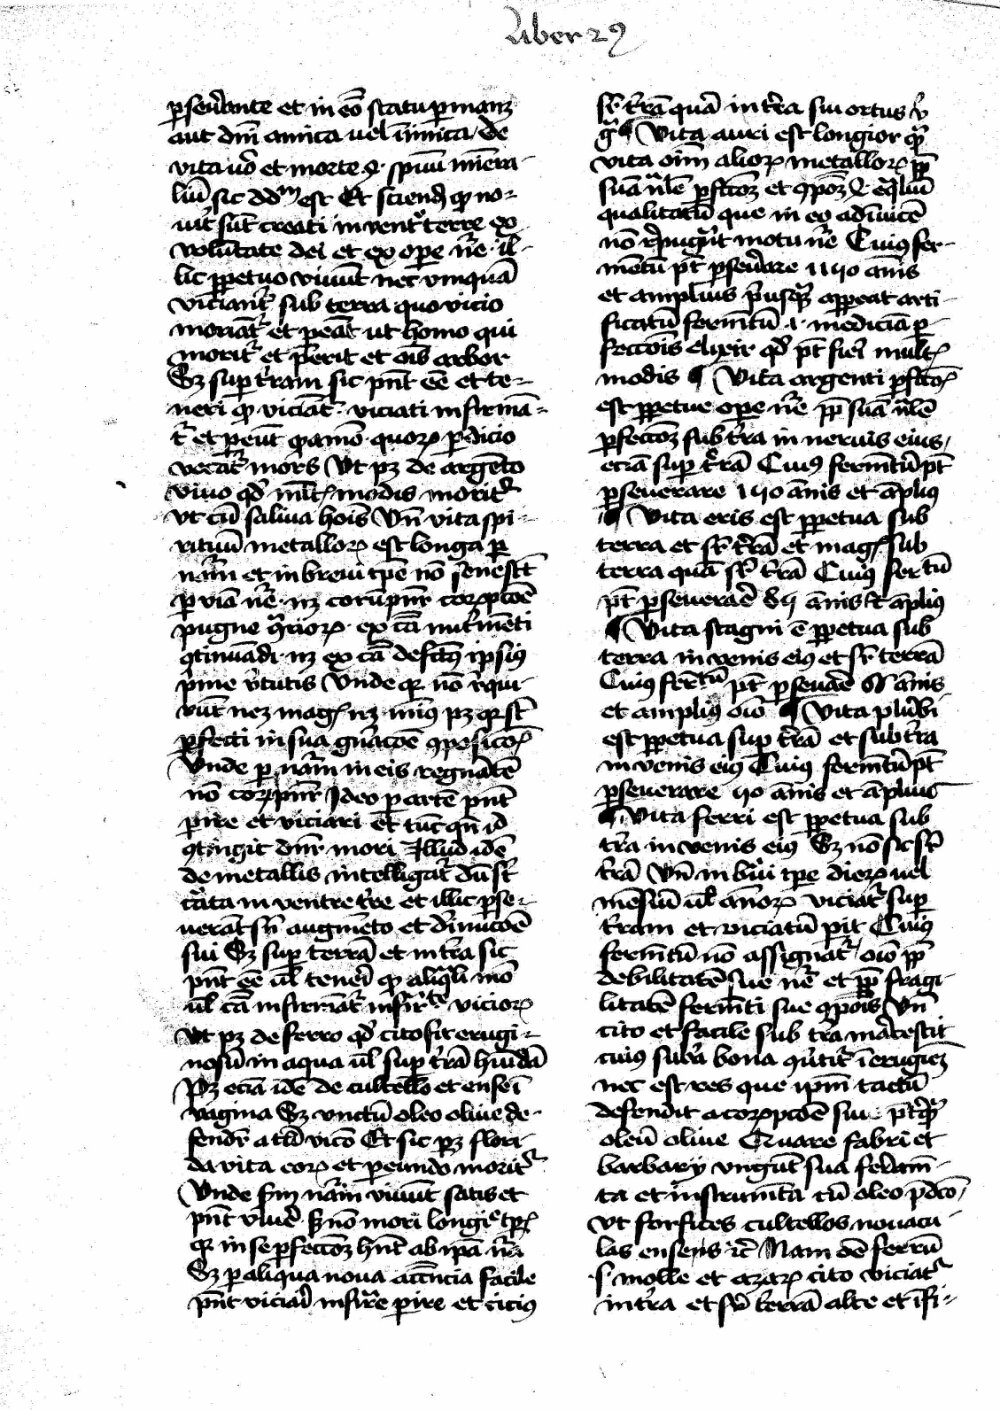 Liber 29
perseu͛ante et in eo͂ statu permanz
aut dn͂i amica uel inimica. de
vita uo͛ et morte .s. spiritu͂ mi͂era-
liu͂ sic ddm est Et sciend qp no-
uit͛ su͂t creati in ventre terre ex
volu͂tate dei et ex ope nr͂e. il-
lic ꝑpetuo viuu͂t nec vnqua͂
viciant͛ sub terra quo vicio
moriat͛ et peat͛ ut homo qui
morit͛ et perit et o͂is arbor
Sz sup terram sic pn͂t ee͂ et te-
neri qp vicia͂t͛. viciati infirma͂-
t͛ et pereu͂t quorꝝ perdicio
vocat͛ mors Vt pz de argento
viuo qd͛ mlt͛ modis morit͛
vt cu͂ saliua ho͂is Vn͂ vita spi-
rituu͂ metalloꝝ est longa per
nat͂m et in breui tp͂e no͂ senesc͂t
per via͂ nr͂e. nz corru͂pu͂r corrupt͂oe͂
pugne ex ca͂ nutrime͂ti
ꝯtinua͂di. nz ex ca͂ defect͛ ipsius
prime v͛tutis Unde qr no͂ requi-
ru͂t nez mag͛ nz min͛ pz qr su͂t
perfecti in sua gn͂acoe͂ ꝯposicoꝝ
Unde per nat͂m in eis regna͂te͂
no͂ corrupu͂r Ideo per arte͂ pn͂t
perire et viciari et tu͂c qn͂ id
ꝯtingit dn͂r mori Illud ide͂
de metallis intelligat͛ du͂ su͂t
cr͂ata in ventre tr͂e et illic perse-
uera͂t sn͂ augme͂to et diminucoe͂
sui Sz super terra͂ et intr͂a sic
pn͂t ee͂ ul teneri qp aliquali mo͂
ul ca͂ infirmat͛ vicioꝝ
Vt pz de ferro qd͛ cito fit erugi-
nosu͂ in aqua ul sup tr͂a͂ humida͂
Pz ecia͂ ide͂ de cultello et ense i͂
vagina Sz vnctu͂ oleo oliue de-
fendit͛ a tali vicio Et sic pz flori-
da vita eoꝝ et pereundo morit͛
Unde sm nat͂m viuu͂t satis et
pn͂t viue͂ no͂ mori longi
qr in se perfeccoz hn͂t ab ip͂a nr͂a
Sz per aliqua noua acc͂ncia facile
pn͂t viciari infir͛re perire et cicius
sr͛ tr͂a͂ qua͂ in tr͂a sui ortus
¶ Vita auri est longior
vita oi͂m alioꝝ metalloꝝ ꝓp
sua͂ nal͛e perfeccoz et ꝯposz
qualitatu͂ que in eo adinuice͂
no͂ repugna͂t motu nr͂e Cuius fer-
me͂tu͂ pt͂ perseu͛are 1140 annis
et amplius priusqz appareat arti-
ficiatu͂ ferm͂tu͂ .i. medicia͂ per-
feccois elixir qd͛ pt͂ fieri mult͛
modis ¶ Vita argenti perfcoꝝ
est ꝑpetue ope nr͂e ꝓp sua͂ nal͛e
perfeccoz sub tr͂a in neruis eius,
ecia͂ super tr͂a͂ Cuius ferm͂tu͂ pt͂
perseuerare 140 annis et a͂plius
¶ Vita eris est ꝑpetua sub
terra et sr͛ tr͂a͂ et mag͛ sub
terra qua͂ sr͛ tr͂a͂ Cuius fertu͂
pt͂ perseuerae͂ annis et a͂plius
¶ Vita stagni e͂ ꝑpetua sub
terra in venis eius et sr͛ terra͂
Cuius fertu͂ pt͂ perseuae͂ annis
et amplius oi͂o ¶ Vita plu͂bi
est ꝑpetua super tr͂a͂ et sub tr͂a
in venis eius Cuius ferm͂tu͂ pt͂
perseuerare 40 annis et a͂plius
¶ Vita ferri est ꝑpetua sub
tr͂a in venis eius Sz no͂ sic sr͛
tr͂a͂ Vn͂ in breui tp͂e dieꝝ uel
mensiu͂ ul annoꝝ viciat͛ super
tr͂am et viciatu͂ perit Cuius
ferm͂tu͂ no͂ assignat͛ oi͂o ꝓp
debilitate͂ sue nr͂e et ꝓp fragi-
litate͂ ferm͂ti sue ꝯpo͂is Vn͂
cito et facile sub tr͂a marcescit
cuius subr͂a bona ꝯu͛tit͛ i͂ erugiez
nec est res que ipm͂ tactu͂
defendit a corrupcoe͂ sua
oleu͂ oliue Quare fabri et
barbarij vngu͂t sua ferrame͂-
ta et instrum͂ta cu͂ oleo pdco,
Vt forfices cultellos nouacu-
las enses etc͂ Nam de͂ ferru͂
.s. molle et azaꝝ cito viciat͛
intr͂a et sr͛ terra͂ alte et i͂fi-